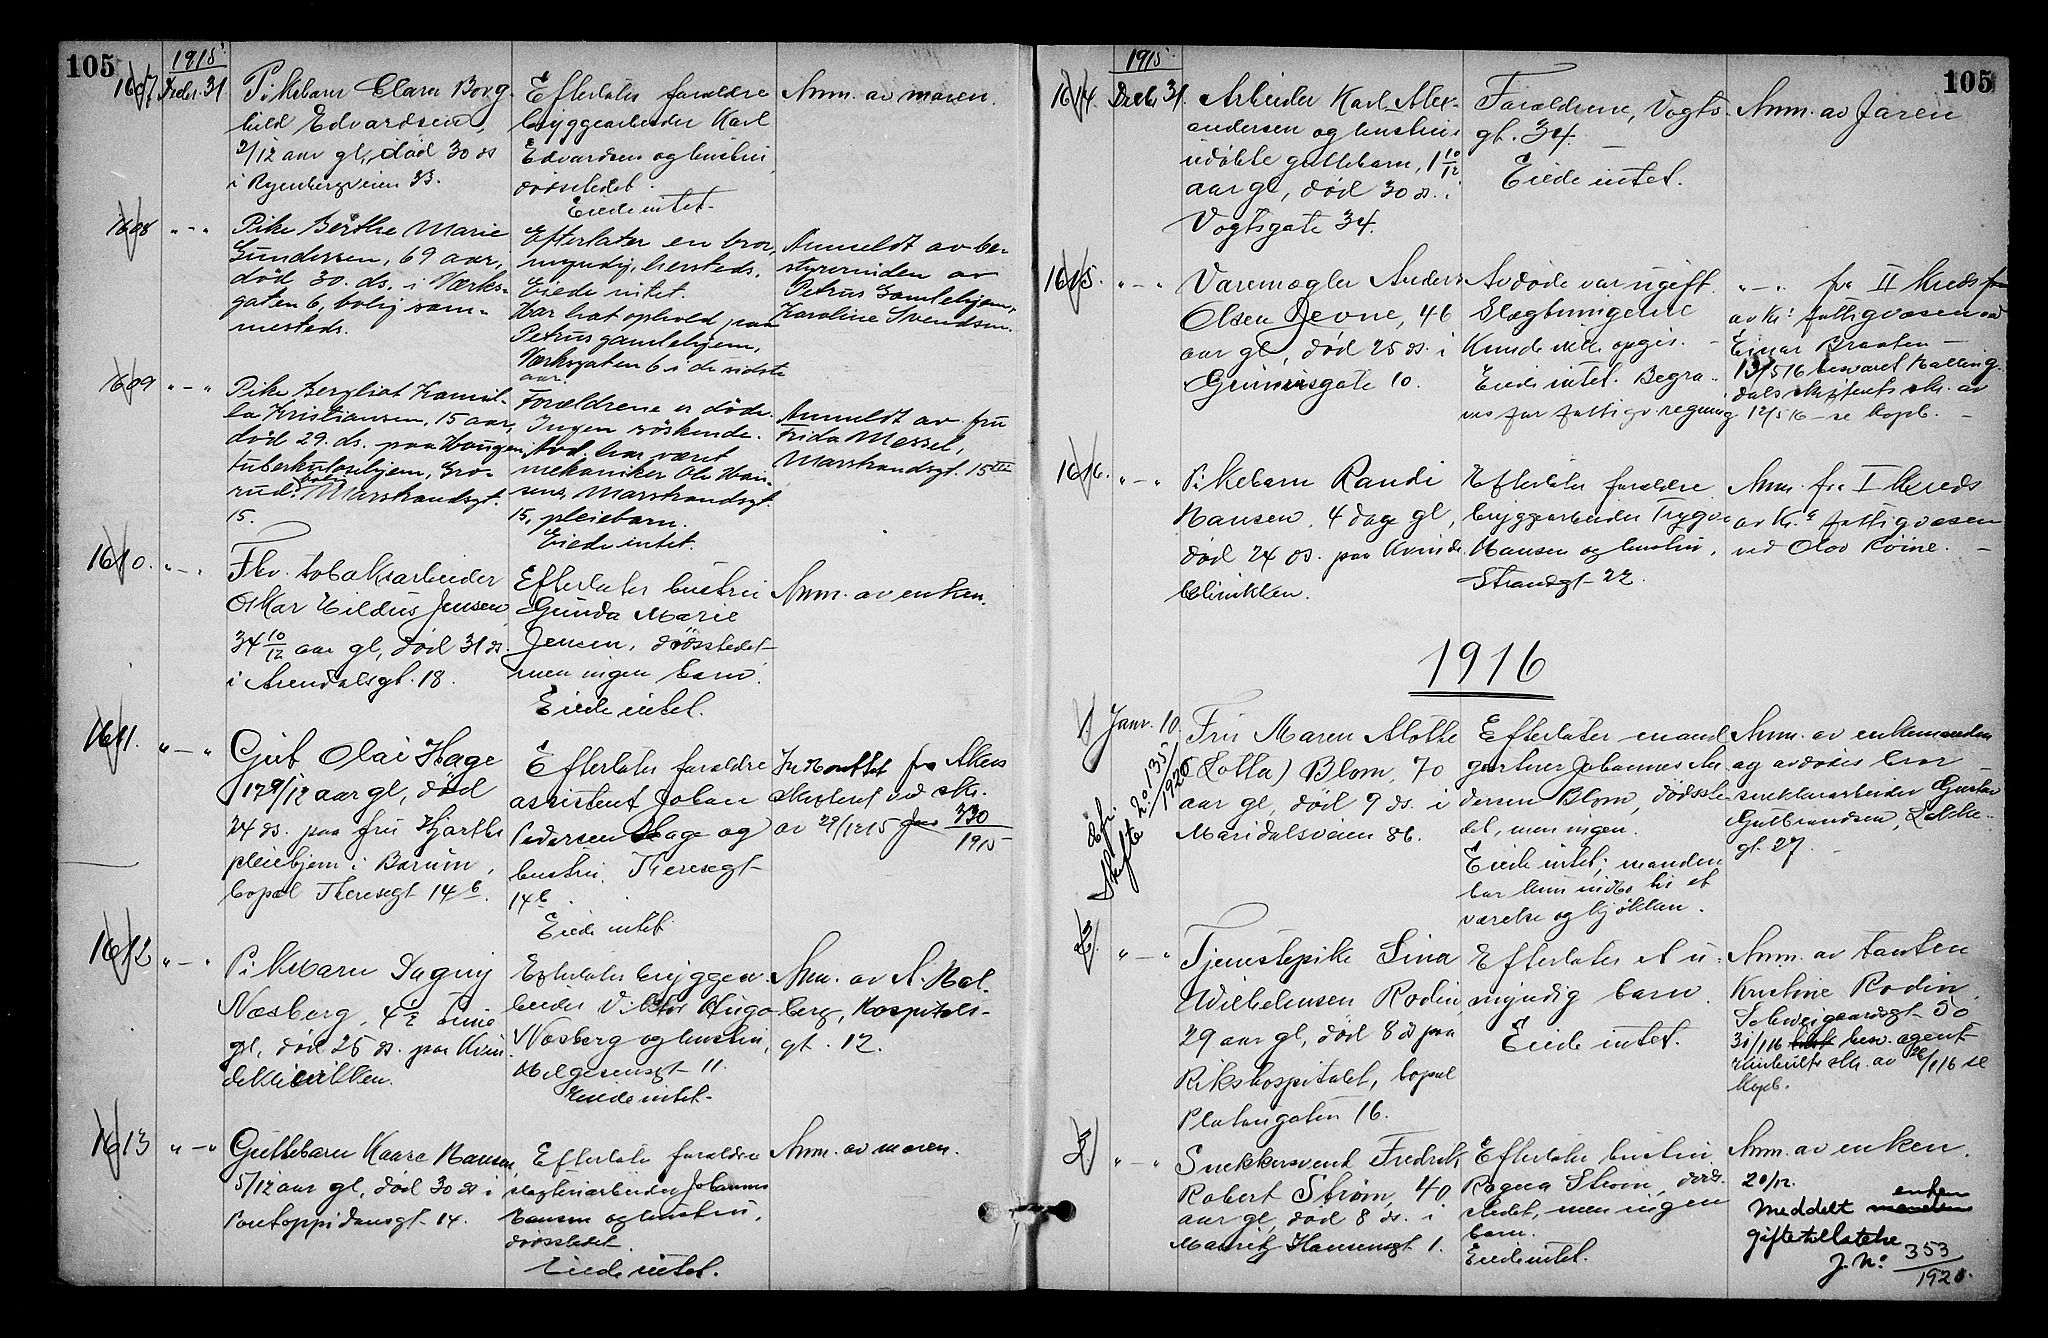 105
1915
1607
Decbr. 31.
Pikebarn Clara Borg-
hild Edvardsen,
2/12 aar gl, død 30 ds
i Ryenbergveien 33.
Efterlater forældre
bryggearbeider Karl
Edvardsen og hustru,
dødsstedet.
Eiede intet.
Anm. av moren.
1608
" — "
Pike Berthe Marie
Gundersen, 69 aar,
død 30. ds. i Værks-
gaten 6, bolig sam-
mesteds.
Efterlater en bror,
myndig, hersteds.
Eiede intet.
Har hat ophold paa
Petrus gamlehjem,
Værksgaten 6 i de sidste
aar.
Anmeldt av be-
styrerinden av
Petrus Gamlehjem,
Karoline Svendsen.
1609
" — "
Pike Bergliot Kamil-
la Kristiansen, 15 aar,
død 29. ds. paa Haugen
tuberkulosehjem, Gro-
rud. bolig Marstrandsgt.
15.
Forældrene er døde.
Ingen søskende.
Avd. har været
mekaniker Ole Han-
sens, Marstrandsgt.
15, pleiebarn.
Eiede intet.
Anmeldt av fru
Frida Messel,
Marstrandsgt. 15 III
1610.
" — "
Fhv. tobaksarbeider
Oskar Hildus Jensen,
34 10/12 aar gl, død 31 ds.
i Arendalsgt. 18.
Efterlater hustru
Gunda Marie
Jensen, dødsstedet
men ingen barn.
Eiede intet.
Anm. av enken.
1611.
" — "
Gut Olai Hage
17 9/12 aar gl, død
24 ds. paa fru Hjorths
pleiehjem i Bærum,
bopæl Theresegt 14 b.
Efterlater forældre
assistent Johan
Pedersen Hage og
hustru, Theresegt
14 b.
Eiede intet
Indberettet fra Akers
skifteret ved skr.
av 29/12 15 Jno 330
1915
1612
" — "
Pikebarn Dagny
Næsberg, 4½ time
gl, død 25 ds. paa Kvin-
deklinikken.
Efterlater bryggear-
beider Viktor Hugo
Næsberg og hustru,
Helgesensgt 11.
Eiede intet.
Anm. av A. Hol-
berg, Hospitals-
gt. 12.
1613
" — "
Guttebarn Kaare Hansen,
5/12 aar gl, død 30 ds i
Pontoppidansgt 14.
Efterlater forældre
slagteriarbeider Johannes
Hansen og hustru,
dødsstedet.
Eiede intet.
Anm. av moren.
105
1915
1614.
Decbr 31.
Arbeider Karl Alex-
andersen og hustrus
udøbte guttebarn, 1 10/12
aar gl, død 30 ds. i
Vogtsgate 34.
Forældrene, Vogts-
gt. 34.
Eiede intet.
Anm. av faren
1615.
" — "
Varemægler Anders
Olsen Jevne, 46
aar gl, død 25 ds. i
Grünersgate 10.
Avdøde var ugift.
Slegtningene
kunde ikke opgis. —
Eiede intet. Begra-
ves for fattigv. regning
" — " fra II Kreds
av Kr.a fattigvæsen ved
Einar Braaten —
13/5 16 besvaret Halling-
dals skifterets skr. av
12/5 16 — se kopb. —
1616.
" — "
Pikebarn Randi
Hansen, 4 dage gl,
død 24 ds. paa Kvinde-
klinikken.
Efterlater forældre
bryggearbeider Trygve
Hansen og hustru,
Strandgt 22.
Anm. fra I Kreds
av Kr.a fattigvæsen
ved Olav Roine. —
1916
1.
Janr. 10.
Fru Maren Alothe
(Lotta) Blom, 70
aar gl, død 9 ds. i
Maridalsveien 86.
Efterlater mand
gartner Johannes An-
dersen Blom, dødsste-
det, men ingen.
Eiede intet; manden
bar kun indbo til et
værelse og kjøkken.
Anm. av enkemanden
og avdødes bror
snekkerarbeider Gustav
Gulbrandsen, Løkke-
gt. 27. —
Skifte 20135/1920
2.
" — "
Tjenestepike Lina
Wilhelmsen Rodin,
29 aar gl, død 8 ds paa
Rikshospitalet, bopæl
Platougaten 16.
Efterlater et u-
myndig barn.
Eiede intet.
Anm. av tanten
Kristine Rodin,
Schweigaardsgt 50
31/1 16 besv. agent
skr. av 26/1 16 se
kopb.
3.
" — "
Snekkersvend Fredrik
Robert Strøm, 40
aar gl, død 8 ds. i
Mauritz Hansensgt 1.
Efterlater hustru
Ragna Strøm, døds-
stedet, men ingen
barn.
Eiede intet.
Anm. av enken.
20/12.
Meddelt enken
giftetillatelse
J. No: 353
1920.